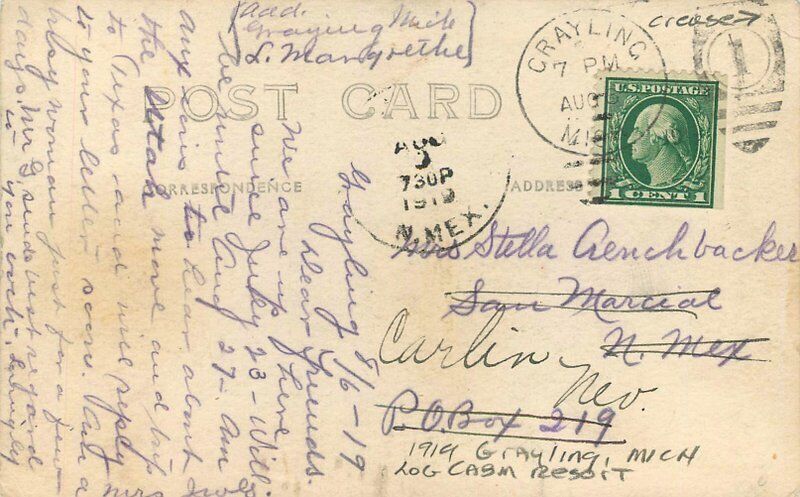 Aad.
Grayling Mich
L. Margrethe
POST CARD
CORRESPONDENCE
ADDRESS
crease→
GRAYLING
7 PM
AUG
MICH
1
U.S. POSTAGE
1 CENT 1
AUG
730P
1919
N. MEX.
Grayling 8/6-19
Dear Friends.
We are up here
since July 23 - Will
be until Aug 27 - am
anxious to hear about
the move and trip
to Texas - and will reply
to your letter soon. Am a
busy woman just for a few
days. Mr D. sends best regards
to you each.
Mrs Stella
San Marcial
N. Mex
P.O. Box 219
Carlin,
Nev.
1919 Grayling, MICH
LOG CABIN RESORT